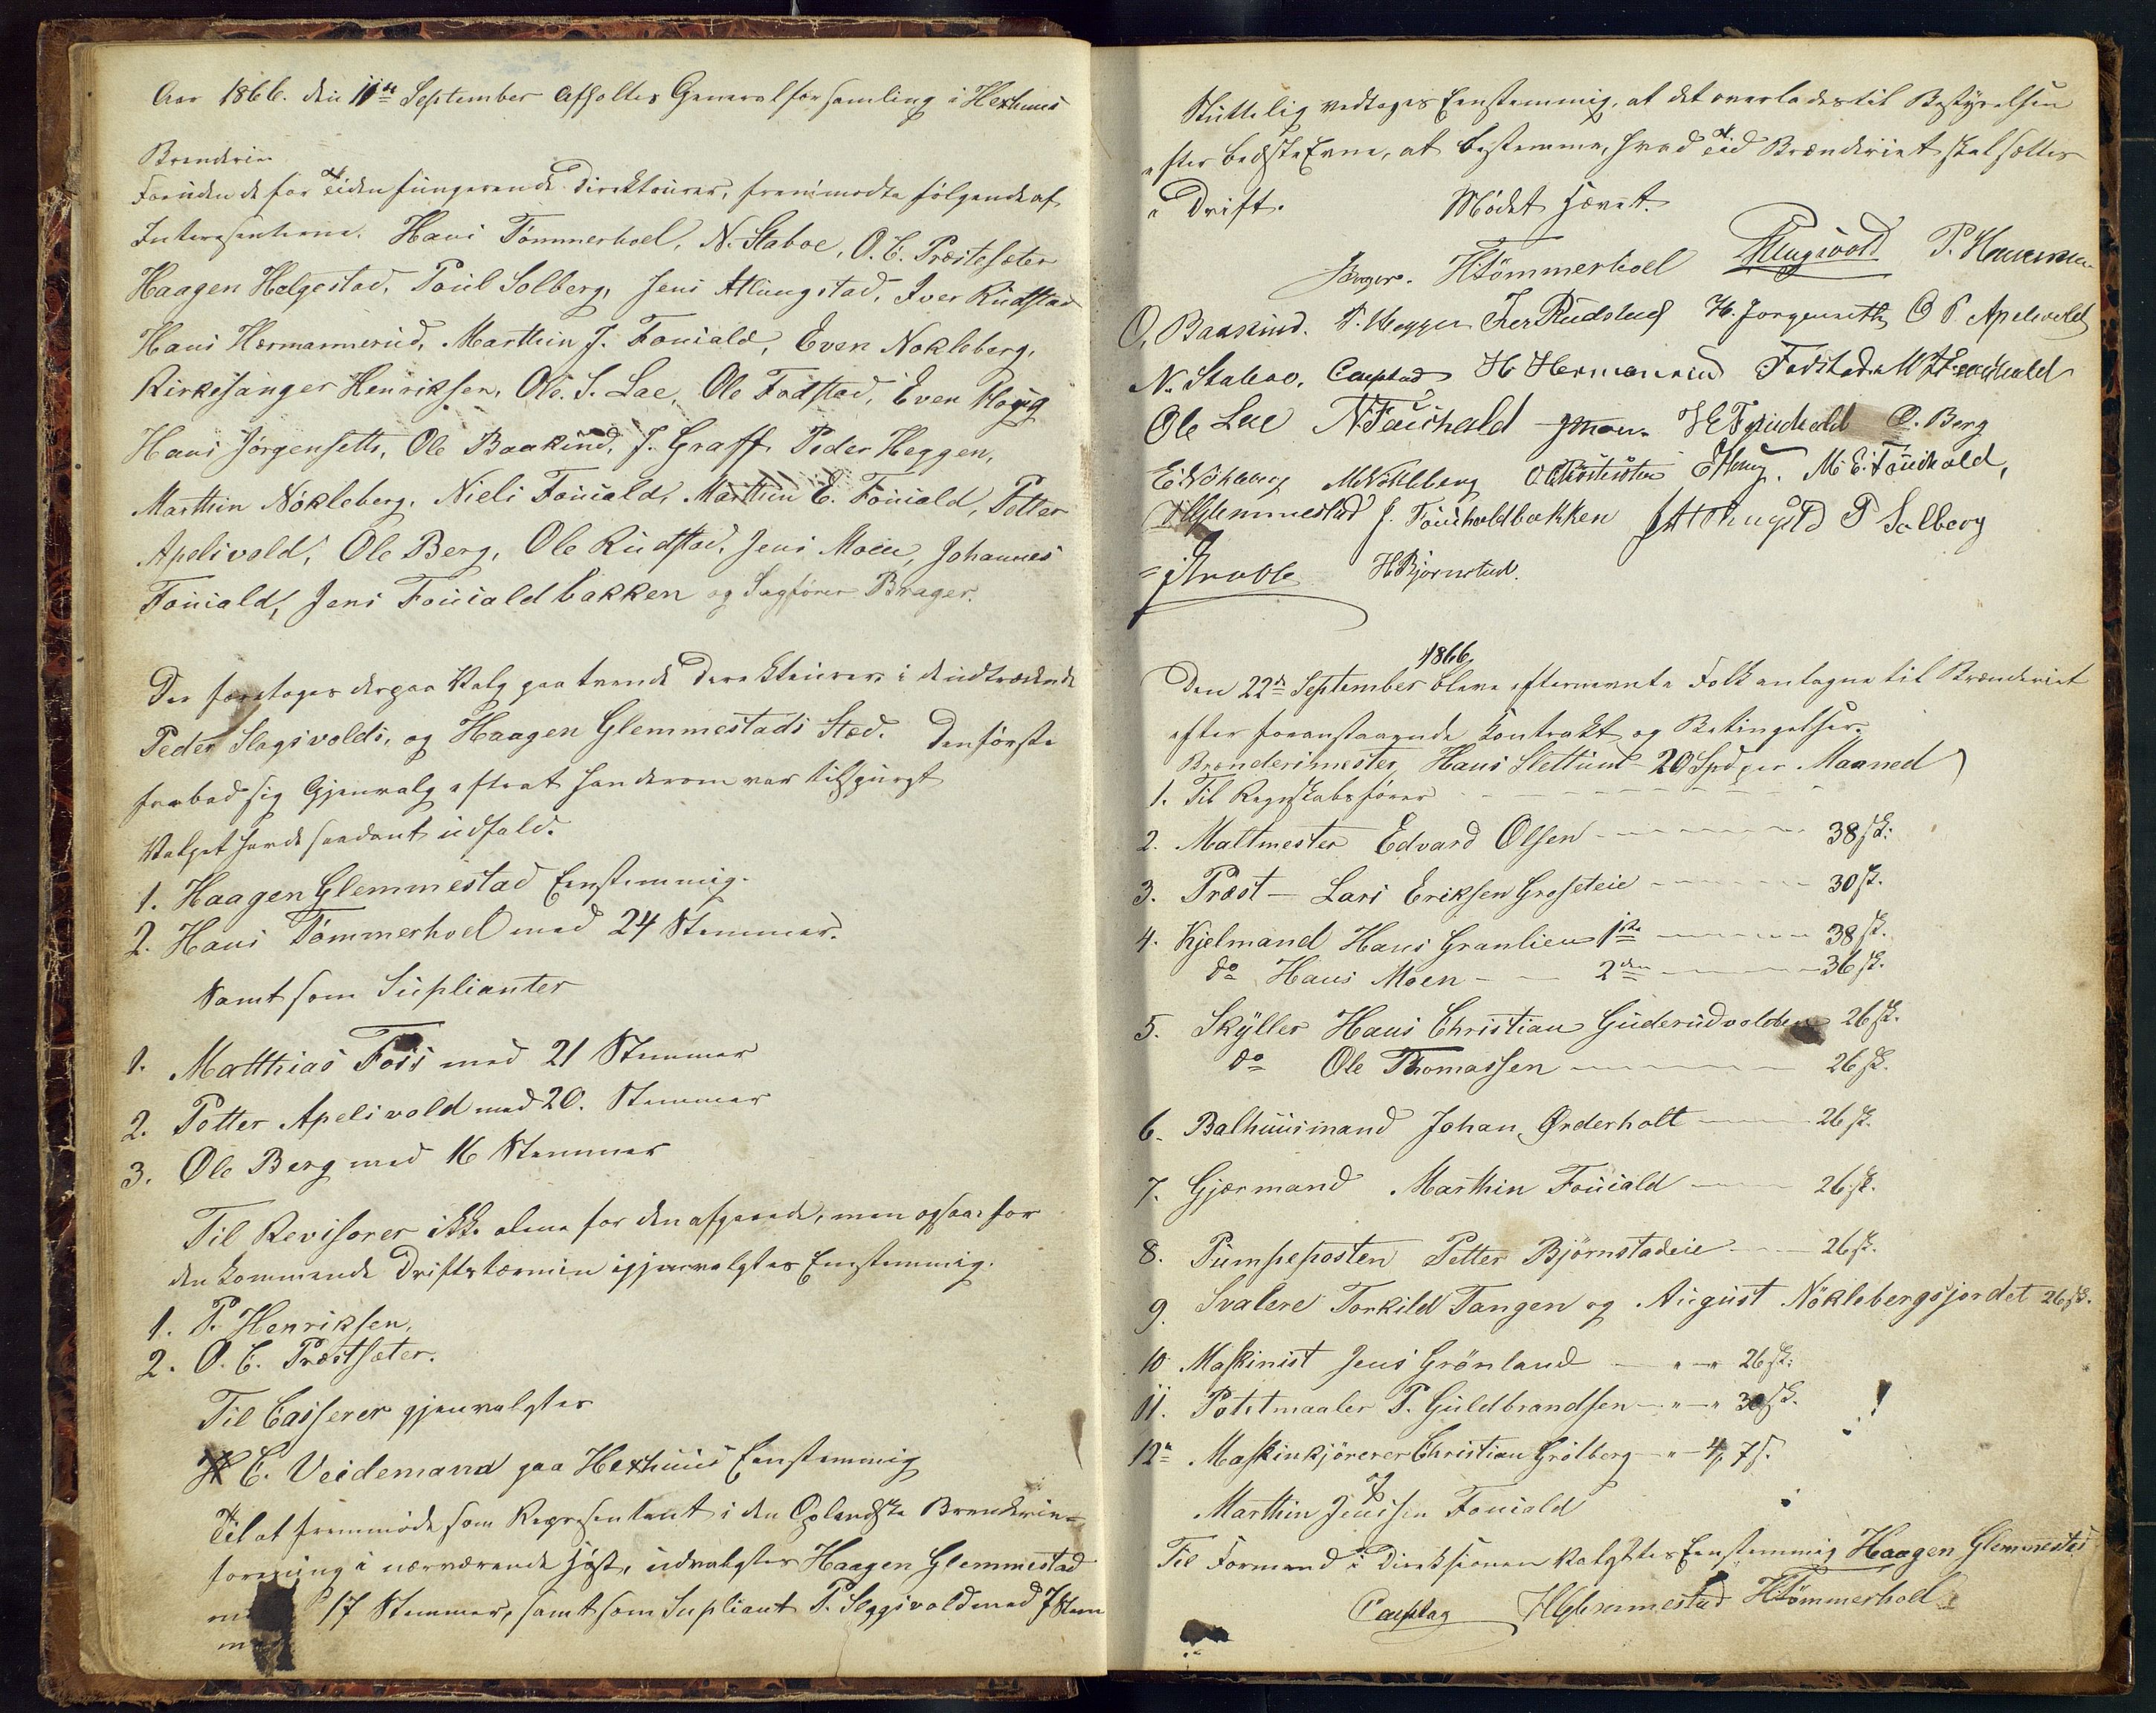 Aar 1866. den 11te September afholtes Generalforsamling i Hexhuus
Brenderie
Foruden de for Tiden fungerende Direkteurer, fremmødte følgende af
Interesenterne. Hans Tömmerhoel, N. Staboe, O. C. Præstesæter
Haagen Helgestad, Poul Solberg, Jens Atlungstad, Iver Rudstad
Hans Hermannerud, Marthin J. Fouiald, Even Nokleberg,
Kirkesanger Henriksen, Ole. S. Lae, Ole Fodstad, Even Houg
Hans Jörgensetts, Ole Baakind, J. Graff, Peder Heggen,
Marthin Nökleberg, Niels Fouiald, Marthin E. Fouiald, Petter
Apelsvold, Ole Berg, Ole Rudstad, Jens Moen, Johannes
Fouiald, Jens Fouialdbakken og Sagfører Brager.
Der foretages derpaa Valg paa tvende Direkteurer i de udtrædende
Peder Slagsvolds, og Haagen Glemmestads Sted. Den første
frabad sig Gjenvalg efterat han derom var tilspurgt
Valget havde saadant udfald.
1. Haagen Glemmestad Eenstemmig.
2. Hans Tömmerhoel med 24 Stemmer.
Samt som Suplianter
1. Matthias Foss med 21 Stemmer
2. Petter Apelsvold med 20. Stemmer
3. Ole Berg med 16 Stemmer
Til Revisorer ikke alene for den afgaaede, men ogsaa for
den kommende Driftstermin igjenvalgtes Eenstemmig.
1. P. Henriksen,
2. O. C. Præstsæter.
Til Casserer gjenvalgtes
C. Veidemann paa Hexhuus Eenstemmig
Til at fremmøde som Representant i den Oplandske Brenderie=
forening i nærværende Høst, udvalgtes Haagen Glemmestad
17 Stemmer, samt som Supliant P. Slagsvold med 7 Stem
Sluttelig vedtoges Eenstemmig, at det overlades til Bestyrelsen
efter bedste Evne, at bestemme, hvad Tid Brænderiet skal sættes
i Drift. Mødet hævet.
Brager. H Tömmerhoel P Slagsvold P. Henriksen
O. Baakind. P. Heggen Iver Rudstad H. Jorgensetth O P Apelsvold
N. Staboe. H Hermanrud Fodstad
Ole Lae N Fauchald JMoen. O. Berg
E Nökleberg M Nökleberg O C Præstesæter E Houg. M. E. Fauchald,
H Glemmestad J. Fouchaldbakken P Solberg
H Bjørnstad.
1866
Den 22de September bleve efternevnte Folk antagne til Brænderiet
efter foranstaaende Kontrakt og Betingelser.
Brenderimester Hans Slettum 20 Spd per Maaned
1. Til Regnskabsfører
2. Maltmester Edvard Olsen 38 sk:
3. Præst - Lars Eriksen Groseteie 30 sk.
4. Kjelmand Hans Granlien 1ste 38 sk.
do Hans Moen 2den 36 sk.
5. Skyller Hans Christian Guderudvolden 26 sk.
do Ole Thomassen 26 sk.
6. Balhuusmand Johan Ørderholt 26 sk.
7. Gjærmand Marthin Fouiald 26 sk.
8. Pumpeposten Petter Bjørnstadeie 26 sk.
9. Svalere Torkild Tangen og August Nöklebergsjordet 26 sk.
10 Maskinist Jens Grönland - " - " 26 sk:
11. Potetmaaler P. Guldbrandsen - " - " 30 sk.
12te Maskinkjörerer Christian Grölberg - " - 4/7 s.
og
Marthin Jensen Fouiald
Til Formand i Direksionen valgtes Eenstemmig Haagen Glemmestad
H Glemmestad H Tömmerhoel